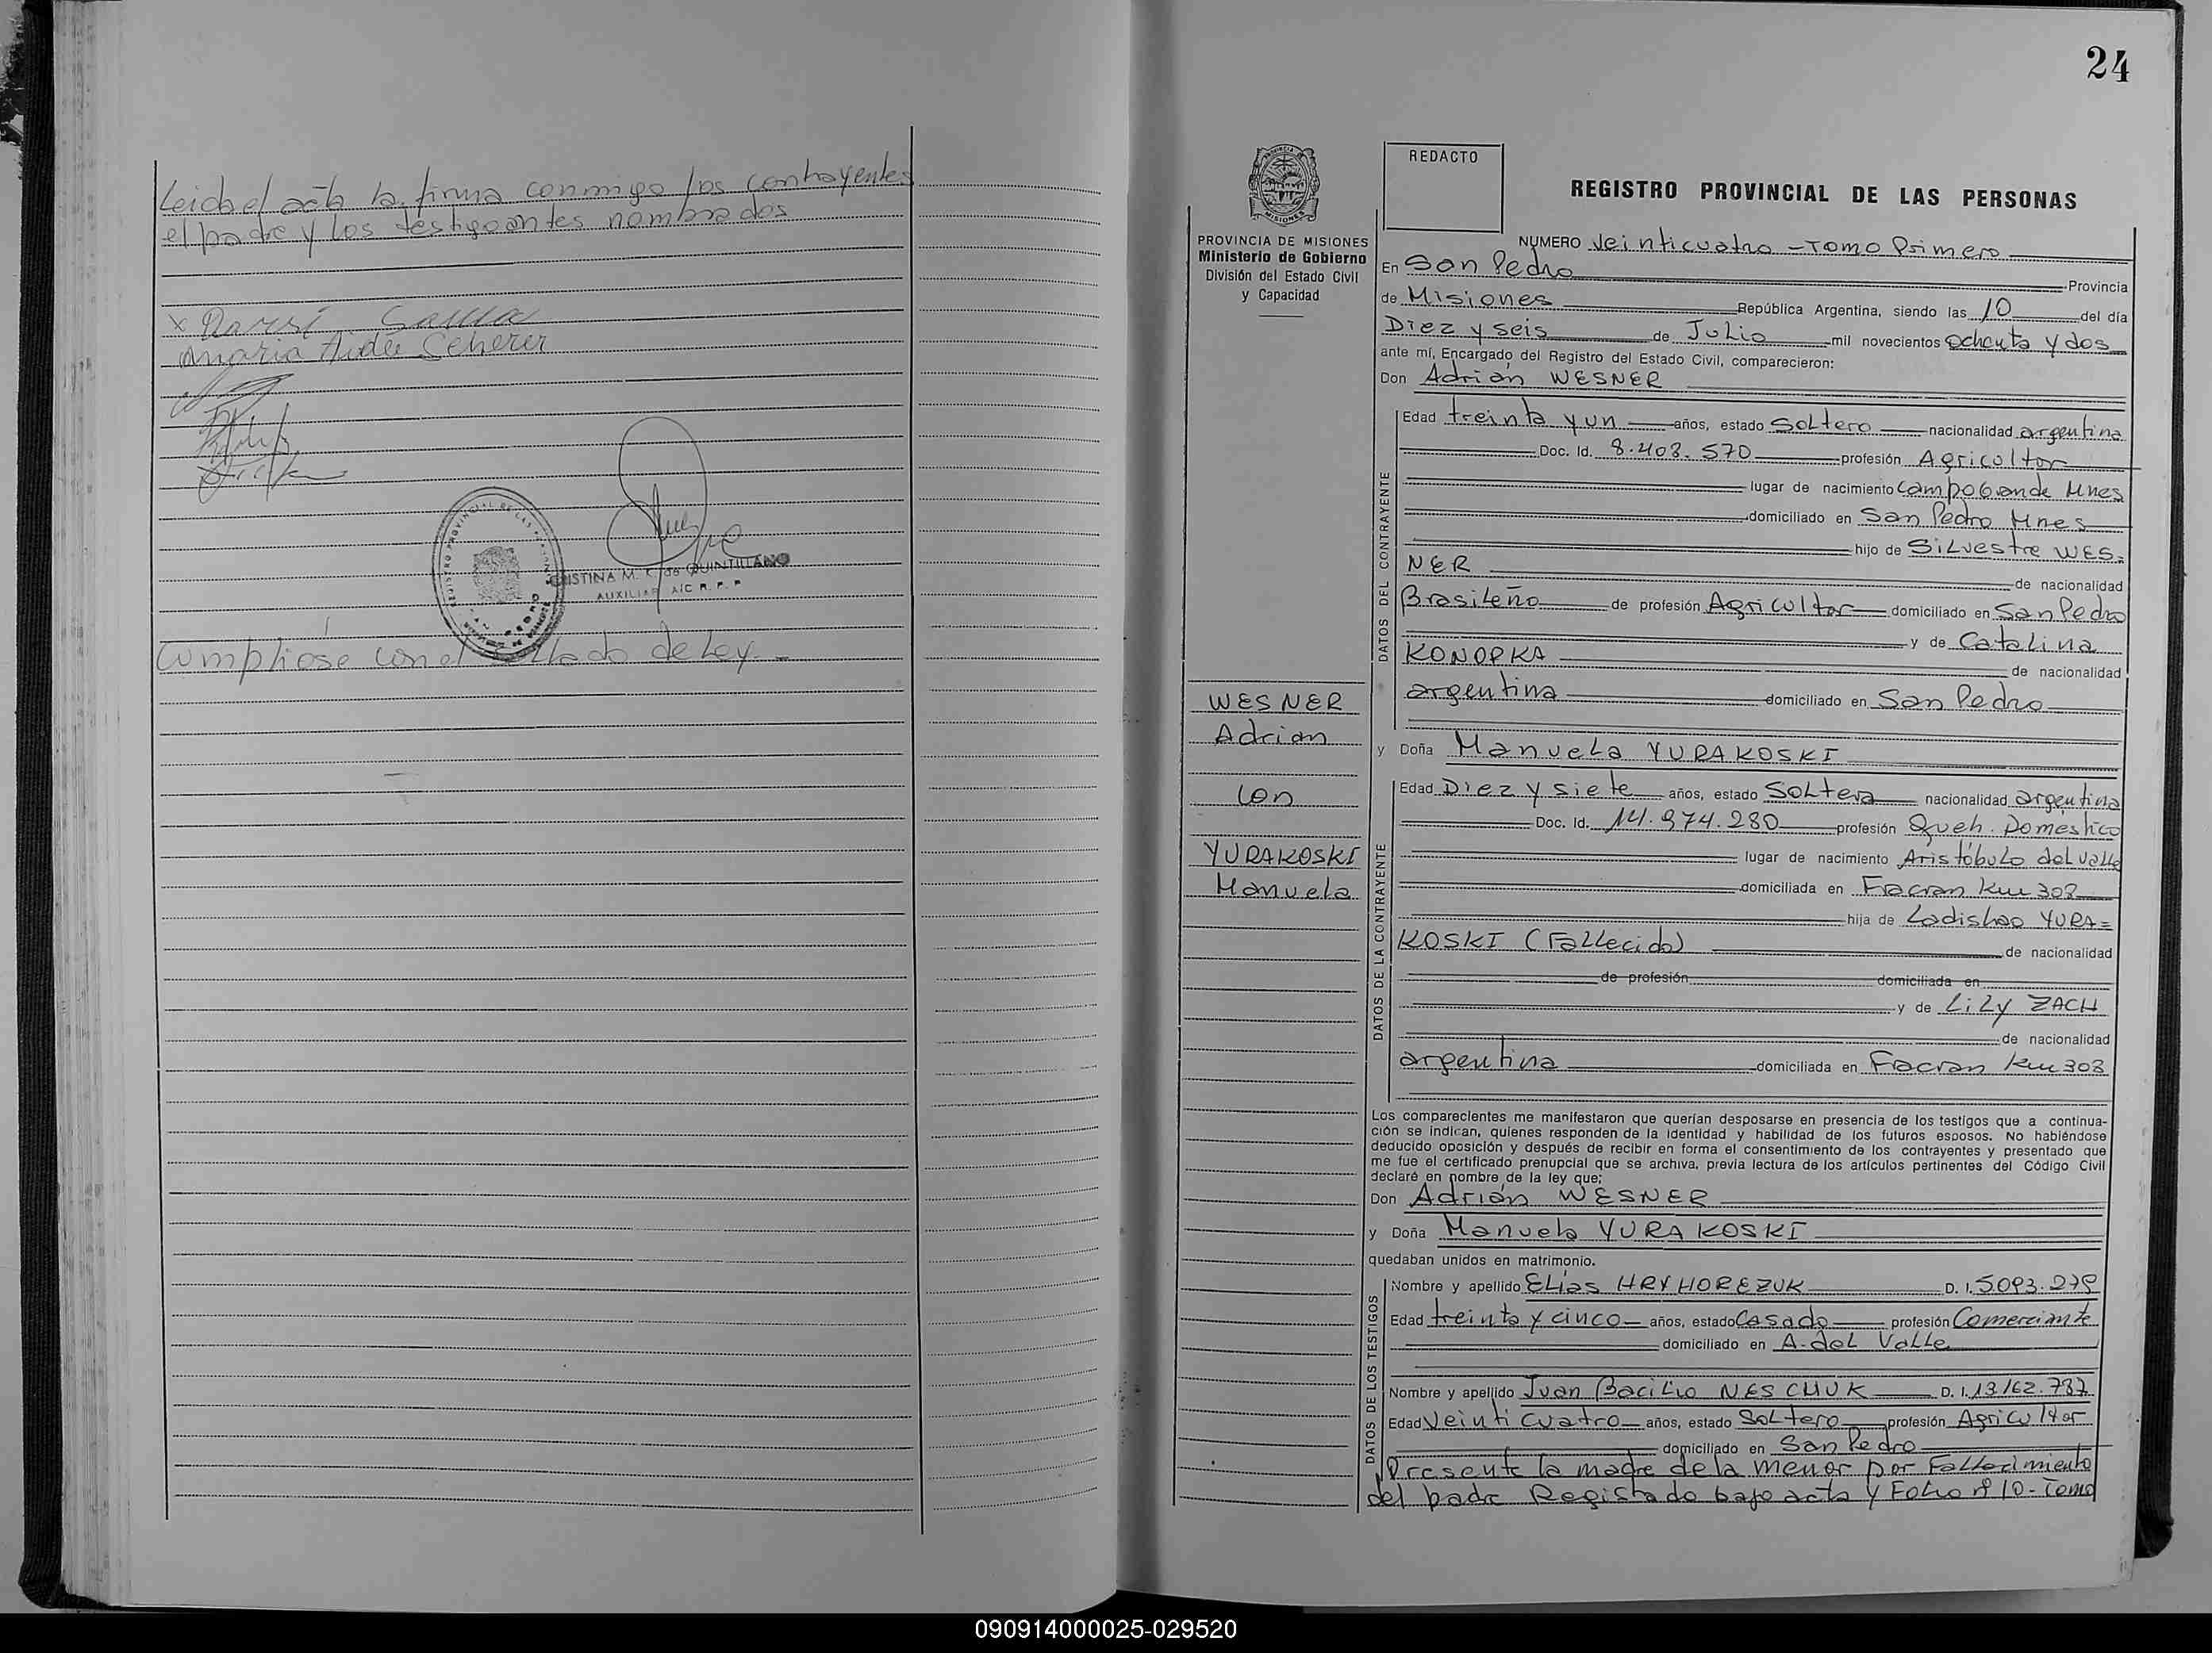 24
Leida el acta la firma conmigo los contrayentes
el padre y los testigo antes nombrados
Maria Aidee Scherer
CRISTINA M. K. de QUINTILLANO
AUXILIAR A/C R. P. P.
Cumpliose con el sellado de Ley. -
PROVINCIA DE MISIONES
Ministerio de Gobierno
División del Estado Civil
y Capacidad
WESNER
Adrian
con
YURAKOSKI
Manuela
REDACTO
REGISTRO PROVINCIAL DE LAS PERSONAS
NUMERO Veinticuatro - Tomo Primero
En San Pedro Provincia
de Misiones República Argentina, siendo las 10 del día
Diez y seis de Julio mil novecientos ochenta y dos
ante mí, Encargado del Registro del Estado Civil, comparecieron:
Don Adrián WESNER
DATOS DEL CONTRAYENTE
Edad treinta y un años, estado Soltero nacionalidad argentina
Doc. Id. 8.408.570 profesión Agricultor
lugar de nacimiento Campo Grande Mnes
domiciliado en San Pedro Mnes
hijo de Silvestre WES=
NER de nacionalidad
Brasileño de profesión Agricultor domiciliado en San Pedro
y de Catalina
KONOPKA de nacionalidad
argentina domiciliado en San Pedro
y Doña Manuela YURAKOSKI
DATOS DE LA CONTRAYENTE
Edad Diez y siete años, estado Soltera nacionalidad argentina
Doc. Id. 14.974.280 profesión Queh. Domestico
lugar de nacimiento Aristóbulo del Valle
domiciliada en Fracran Km 303
hija de Ladislao YURA=
KOSKI (Fallecido) de nacionalidad
de profesión domiciliada en
y de Lily ZACH
de nacionalidad
argentina domiciliada en Fracran Km 303
Los comparecientes me manifestaron que querían desposarse en presencia de los testigos que a continua-
ción se indican, quienes responden de la identidad y habilidad de los futuros esposos. No habiéndose
deducido oposición y después de recibir en forma el consentimiento de los contrayentes y presentado que
me fue el certificado prenupcial que se archiva, previa lectura de los artículos pertinentes del Código Civil
declaré en nombre de la ley que;
Don Adrián WESNER
y Doña Manuela YURAKOSKI
quedaban unidos en matrimonio.
DATOS DE LOS TESTIGOS
Nombre y apellido Elías HRYHOREZUK D. I. 5.093.279
Edad treinta y cinco años, estado Casado profesión Comerciante
domiciliado en A. del Valle
Nombre y apellido Juan Bacilio NESCHUK D. I. 13.162.787
Edad Veinticuatro años, estado Soltero profesión Agricultor
domiciliado en San Pedro
Presente la madre de la menor por Fallecimiento
del padre Registrado bajo acta y Folio nº 10 - Tomo
090914000025-029520